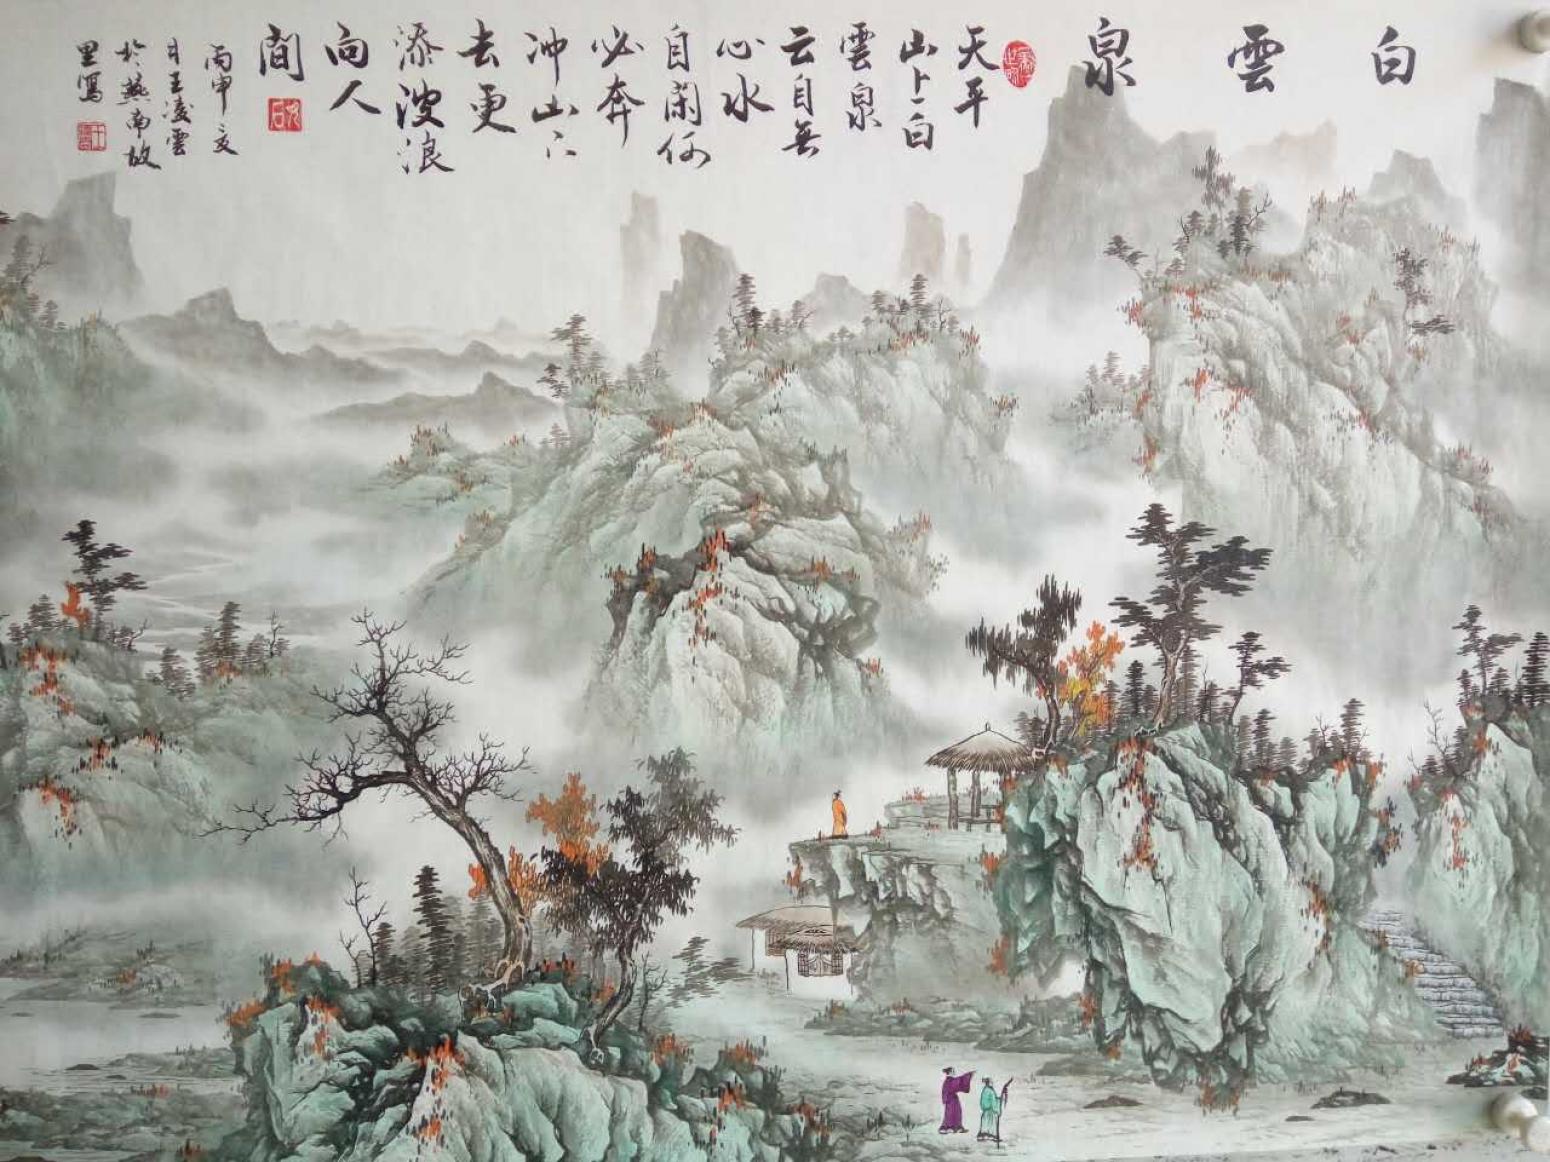 白雲泉
天平
山上白
雲泉
云自無
心水
自閑何
必奔
冲山下
去更
添波浪
向人
間
丙申夏
月王凌雲
於燕南故
里寫